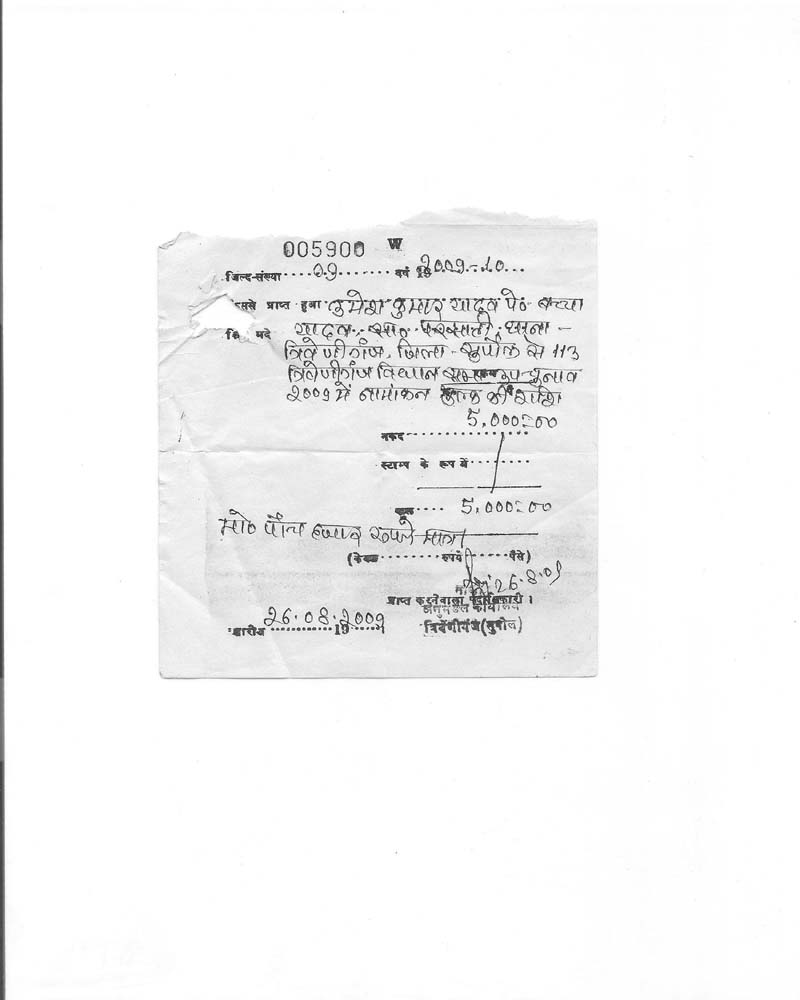 005900 W
जिल्द-संख्या .... 09 ....... वर्ष 19 2009-10...
जिससे प्राप्त हुआ उमेश कुमार यादव पे० बच्चा
यादव, सा० थाना -
त्रिवेणीगंज, जिला - सुपौल से 113
त्रिवेणीगंज विधान सभा उप चुनाव
2009 में नामांकन शुल्क की राशि
5,000=00
नकद ..............
स्टाम्प के रूप में ..........
कुल .... 5,000=00
मो० पाँच हजार रुपये मात्र
(केवल ........ रुपये ...... पैसे)
26.8.09
प्राप्त करनेवाला पदाधिकारी।
अनुमंडल कार्यालय
26.08.2009
तारीख ............ 19 ......
त्रिवेणीगंज (सुपौल)